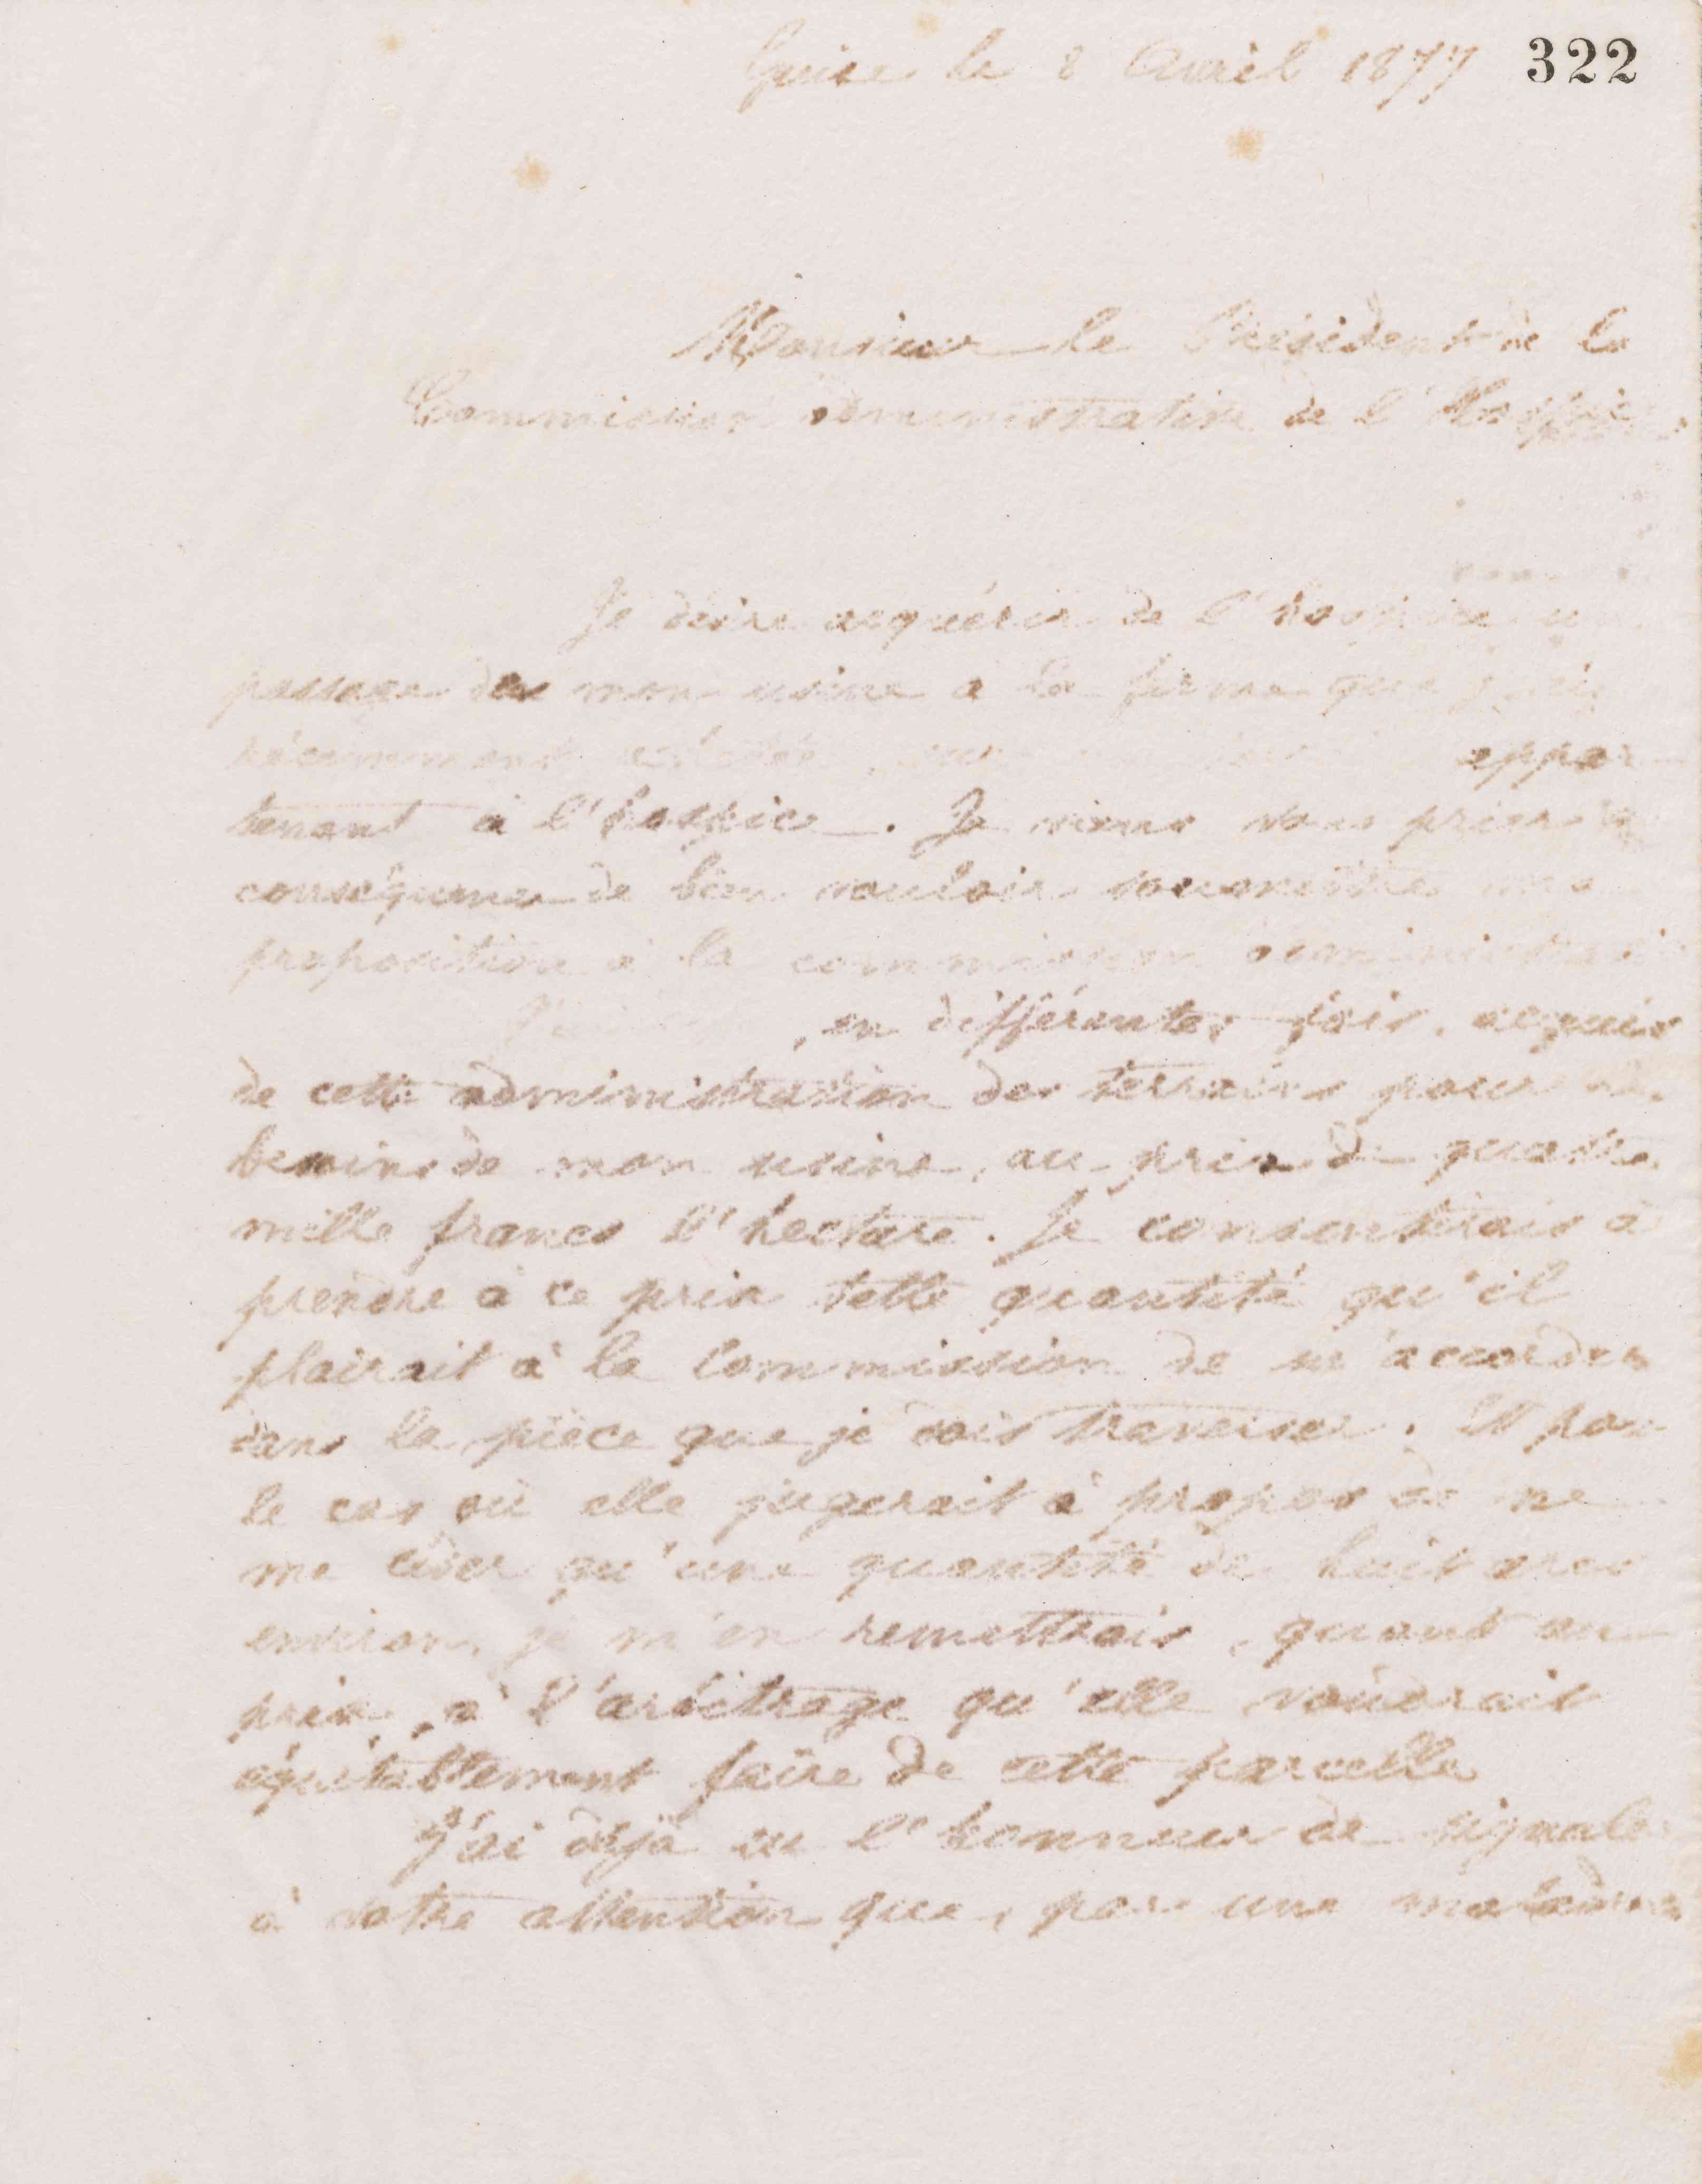 Guise le 8 Avril 1877 322
Monsieur le Président de la
Commission administrative de l'Hospice
Je désire acquérir de l'hospice un
passage de mon usine à la ferme que j'ai
récemment achetée, appar
tenant à l'hospice. Je viens vous prier
conséquence de bien vouloir soumettre ma
proposition à la commission administrati
, en différentes fois, acquis
de cette administration des terrains pour
besoins de mon usine, au prix de quatre
mille francs l'hectare. Je consentirais à
prendre à ce prix telle quantité qu'il
plairait à la Commission de m'accorder
dans la pièce que je dois traverser. Et pour
le cas où elle jugerait à propos de ne
me céder qu'une quantité de huit ares
environ, je m'en remettrais, quant au
prix, à l'arbitrage qu'elle voudrait
équitablement faire de cette parcelle
J'ai déjà eu l'honneur de signaler
à votre attention que, par une